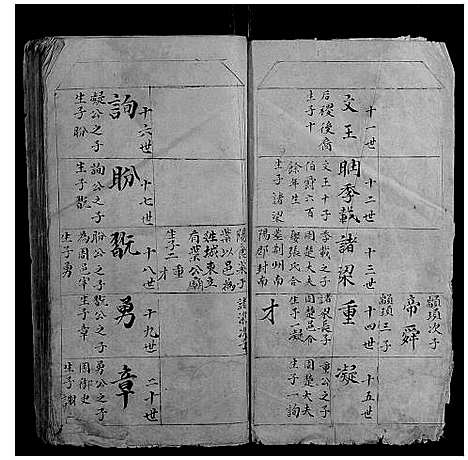 顓頊次子
帝舜
顓頊三子
十一世
文王
后稷後裔
生子十
十二世
聃季載
文王十子
伯爵六百
餘年生
子諸梁
十三世
諸梁
季載之子
周楚大夫
娶張氏合
葬荊州南
陽郡封南
陽葉子
葉以邑為
姓城東立
有葉公廟
生子二
重
才
十四世
重
諸梁長子
周楚邑合
生子一凝
才
諸梁次子
十五世
凝
重公之子
周楚大夫
生子一詢
十六世
詢
凝公之子
生子盼
十七世
盼
詢公之子
生子翫
十八世
翫
盼公之子
為周邑宰
生子勇
十九世
勇
翫公之子
生子章
二十世
章
勇公之子
周御史
生子謝